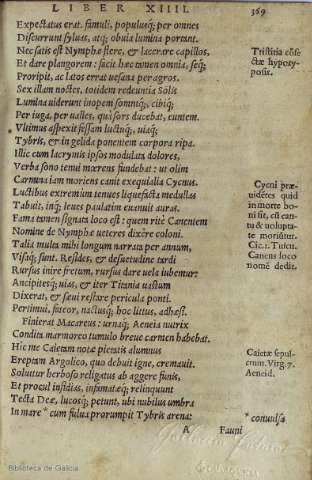 LIBER XIIII.
369
Expectatus erat. famuli, populusq; per omnes
Discurrunt syluas, atq; obuia lumina portant.
Nec satis est Nymphæ flere, & lacerare capillos,
Et dare plangorem: facit hæc tamen omnia, seq;
Proripit, ac latos errat uesana per agros.
Sex illam noctes, totidem redeuntia Solis
Lumina uiderunt inopem somniq;, cibiq;
Per iuga, per ualles, qua sors ducebat, euntem.
Vltimus aspexit fessam luctuq;, uiaq;
Tybris, & in gelida ponentem corpora ripa.
Illic cum lacrymis ipsos modulata dolores,
Verba sono tenui mœrens fundebat: ut olim
Carmina iam moriens canit exequialia Cycnus.
Luctibus extremum tenues liquefacta medullas
Tabuit, inq; leues paulatim euanuit auras.
Fama tamen signata loco est: quem ritè Canentem
Nomine de Nymphæ ueteres dixère coloni.
Talia multa mihi longum narrata per annum,
Visaq; sunt. Resides, & desuetudine tardi
Rursus inire fretum, rursus dare uela iubemur:
Ancipitesq; uias, & iter Titania uastum
Dixerat, & sæui restare pericula ponti.
Pertimui, fateor, nactusq; hoc littus, adhæsi.
Finierat Macareus: urnaq; Aeneia nutrix
Condita marmorea tumulo breue carmen habebat.
Hic me Caietam notæ pietatis alumnus
Ereptam Argolico, quo debuit igne, cremauit.
Soluitur herboso religatus ab aggere funis,
Et procul insidias, infamatæq; relinquunt
Tecta Deæ, lucosq; petunt, ubi nubilus umbra
In mare * cum fulua prorumpit Tybris arena:
A
Fauni
Tristitiæ cõfe-
ctæ hypoty-
posis.
Cycni præ-
uidētes quid
in morte bo-
ni sit, cū can-
tu & uolupta-
te moriūtur.
Cic. 1. Tuscu.
Canens loco
nomē dedit.
Caietæ sepul-
crum. Virg. 7.
Aeneid.
* conuulsa
Biblioteca de Galicia